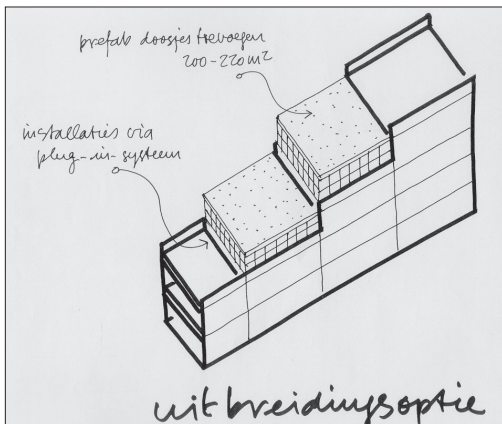 prefab doosjes toevoegen
200-220m²
installaties via
plug-in-systeem
uitbreidingsoptie